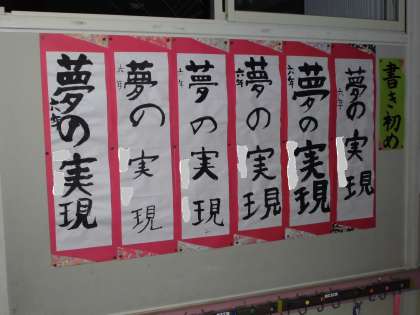 書き初め
夢の実現
六年
夢の実現
六年
夢の実現
六年
夢の実現
六年
夢の実現
六年
夢の実現
六年